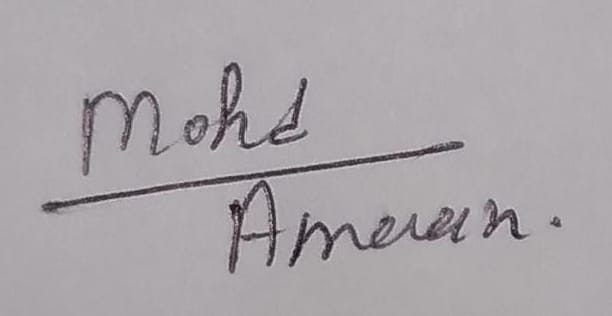 Mohd
Ameeen.